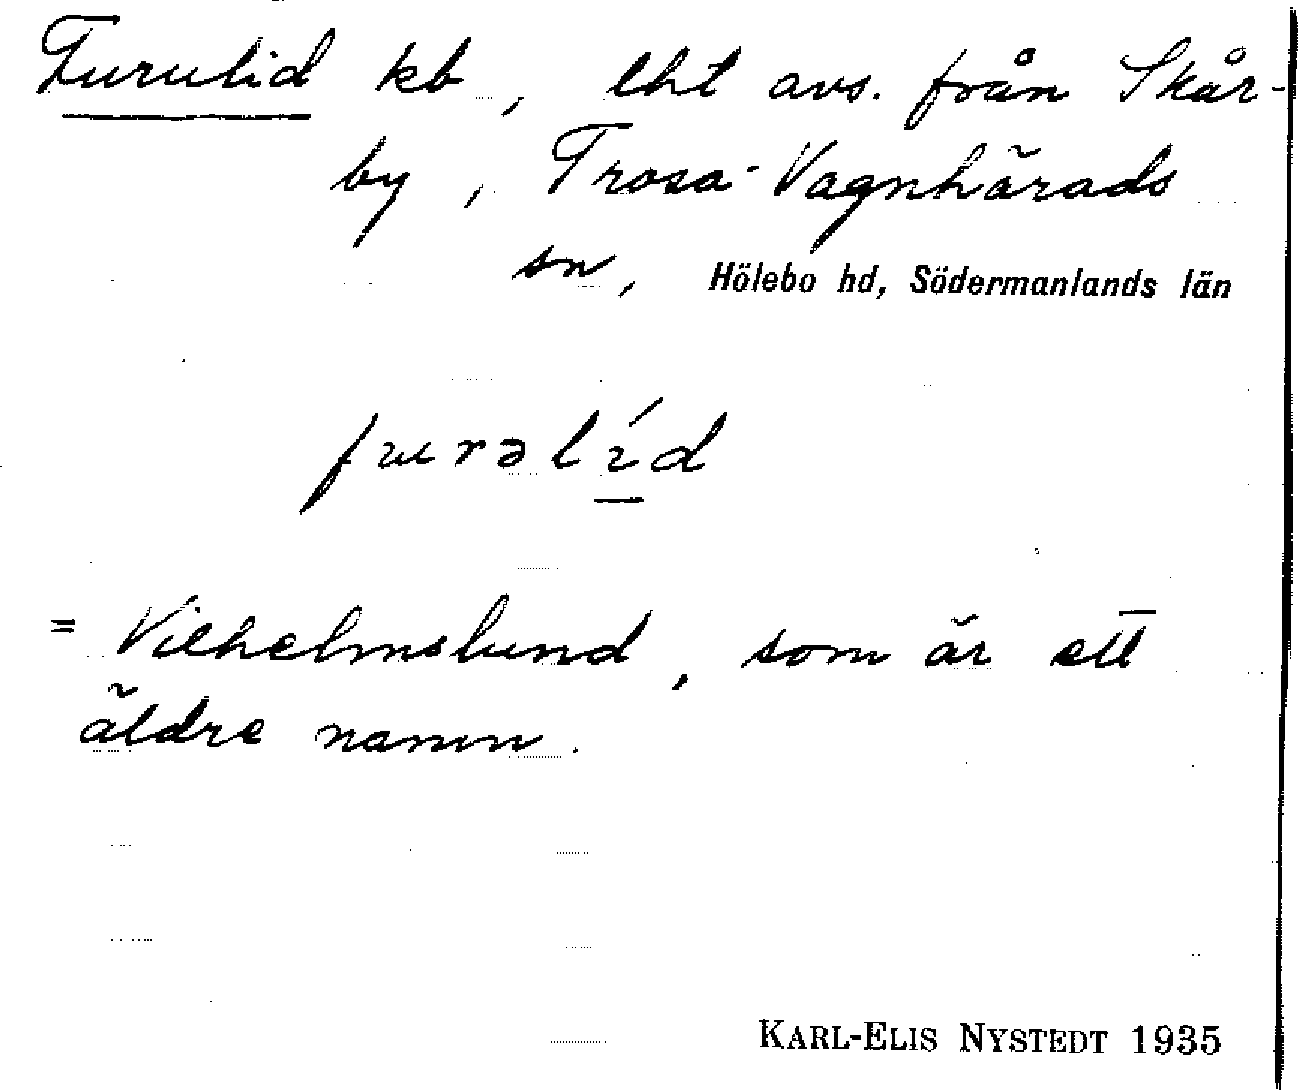 Furulid kb, lht avs. från Skår-
by, Trosa-Vagnhärads
sn, Hölebo hd, Södermanlands län
furəlíd
= Vilhelmslund, som är ett
äldre namn.
KARL-ELIS NYSTEDT 1935